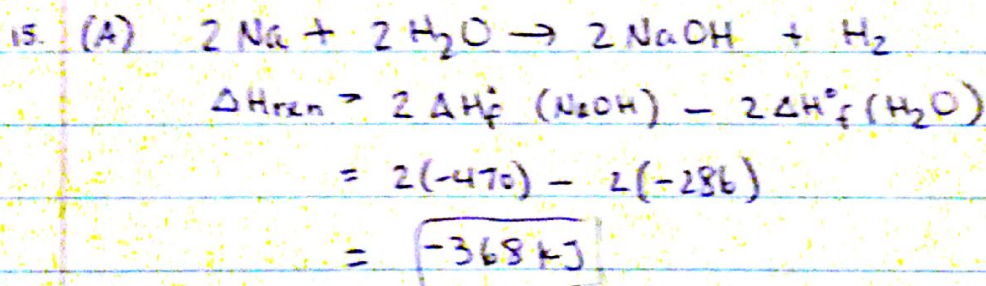 15. (A) 2 Na + 2 H₂O → 2 NaOH + H₂
ΔHrxn = 2 ΔH°f (NaOH) − 2 ΔH°f (H₂O)
= 2(-470) − 2(-286)
= -368 kJ